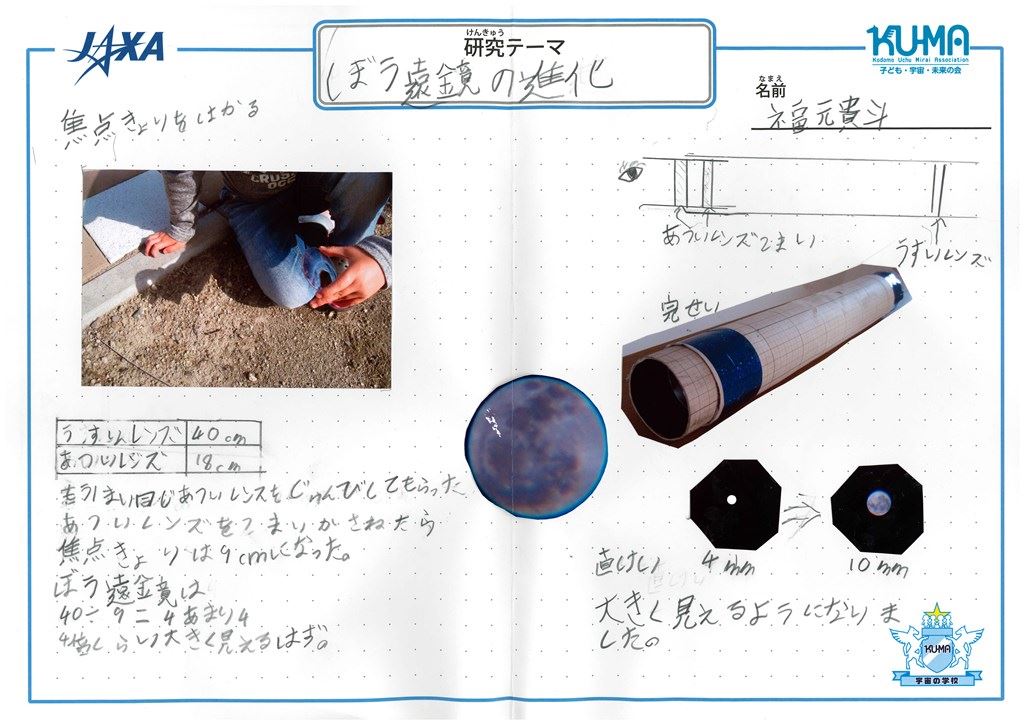 JAXA
けんきゅう
研究テーマ
ぼう遠鏡の進化
KUMA
Kodomo Uchu Mirai Association
子ども・宇宙・未来の会
なまえ
名前
福元貴斗
焦点きょりをはかる
CRUSH
あついレンズ2まい
うすいレンズ
完せい
うすいレンズ 40cm
あついレンズ 18cm
もう1まい同じあついレンズをじゅんびしてもらった
あついレンズを2まいかさねたら
焦点きょりは9cmになった。
ぼう遠鏡は
40÷9=4あまり4
4倍くらい大きく見えるはず。
直けい 4mm 10mm
大きく見えるようになりま
した。
KUMA
宇宙の学校